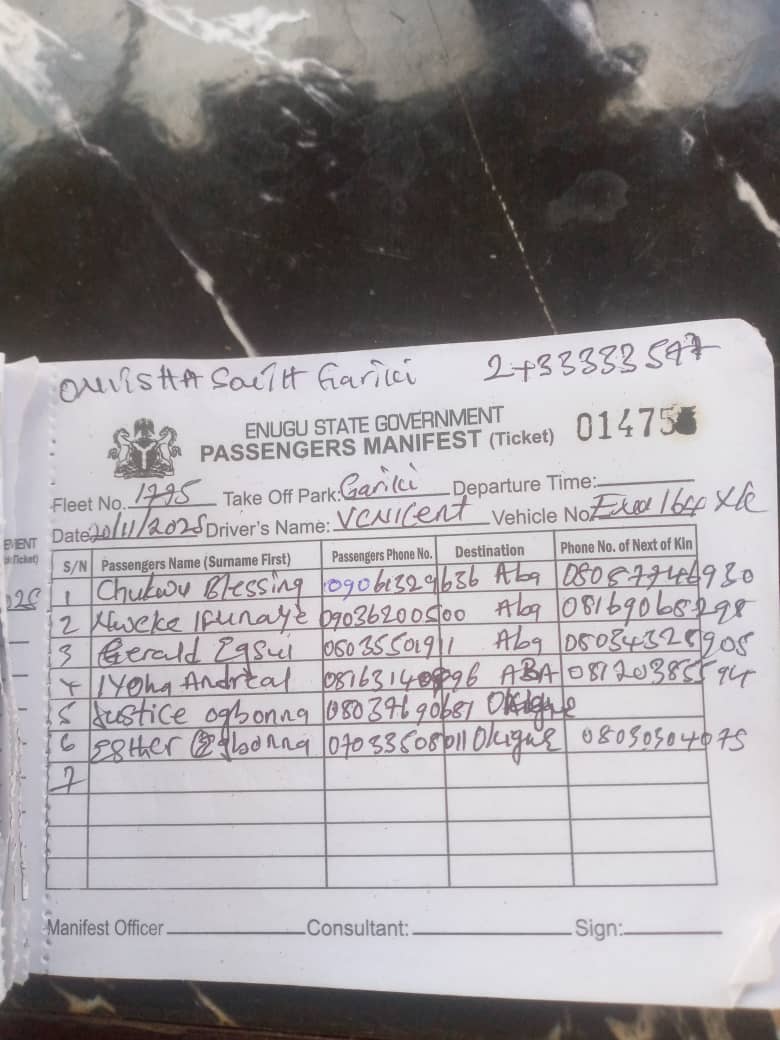 ONISHA SOUTH Gariki 2+33333597
ENUGU STATE GOVERNMENT
PASSENGERS MANIFEST (Ticket) 01475
Fleet No. 1775 Take Off Park: Gariki Departure Time:
Date 20/11/2025 Driver's Name: VCNICENT Vehicle No
S/N Passengers Name (Surname First) Passengers Phone No. Destination Phone No. of Next of Kin
1 Chukwu Blessing 09061329636 Aba 08057746930
2 Nweke Ifunaye 09036200500 Aba 08169068298
3 Gerald 08035501911 Aba 08034328905
4 IYOha 0816314 96 ABA 08120385594
5 Justice Ogbonna 08037690687 Okigwe
6 Esther Ogbonna 07033508011 Okigwe 08030304075
7
Manifest Officer Consultant: Sign:
EVENT
(Ticket)
025